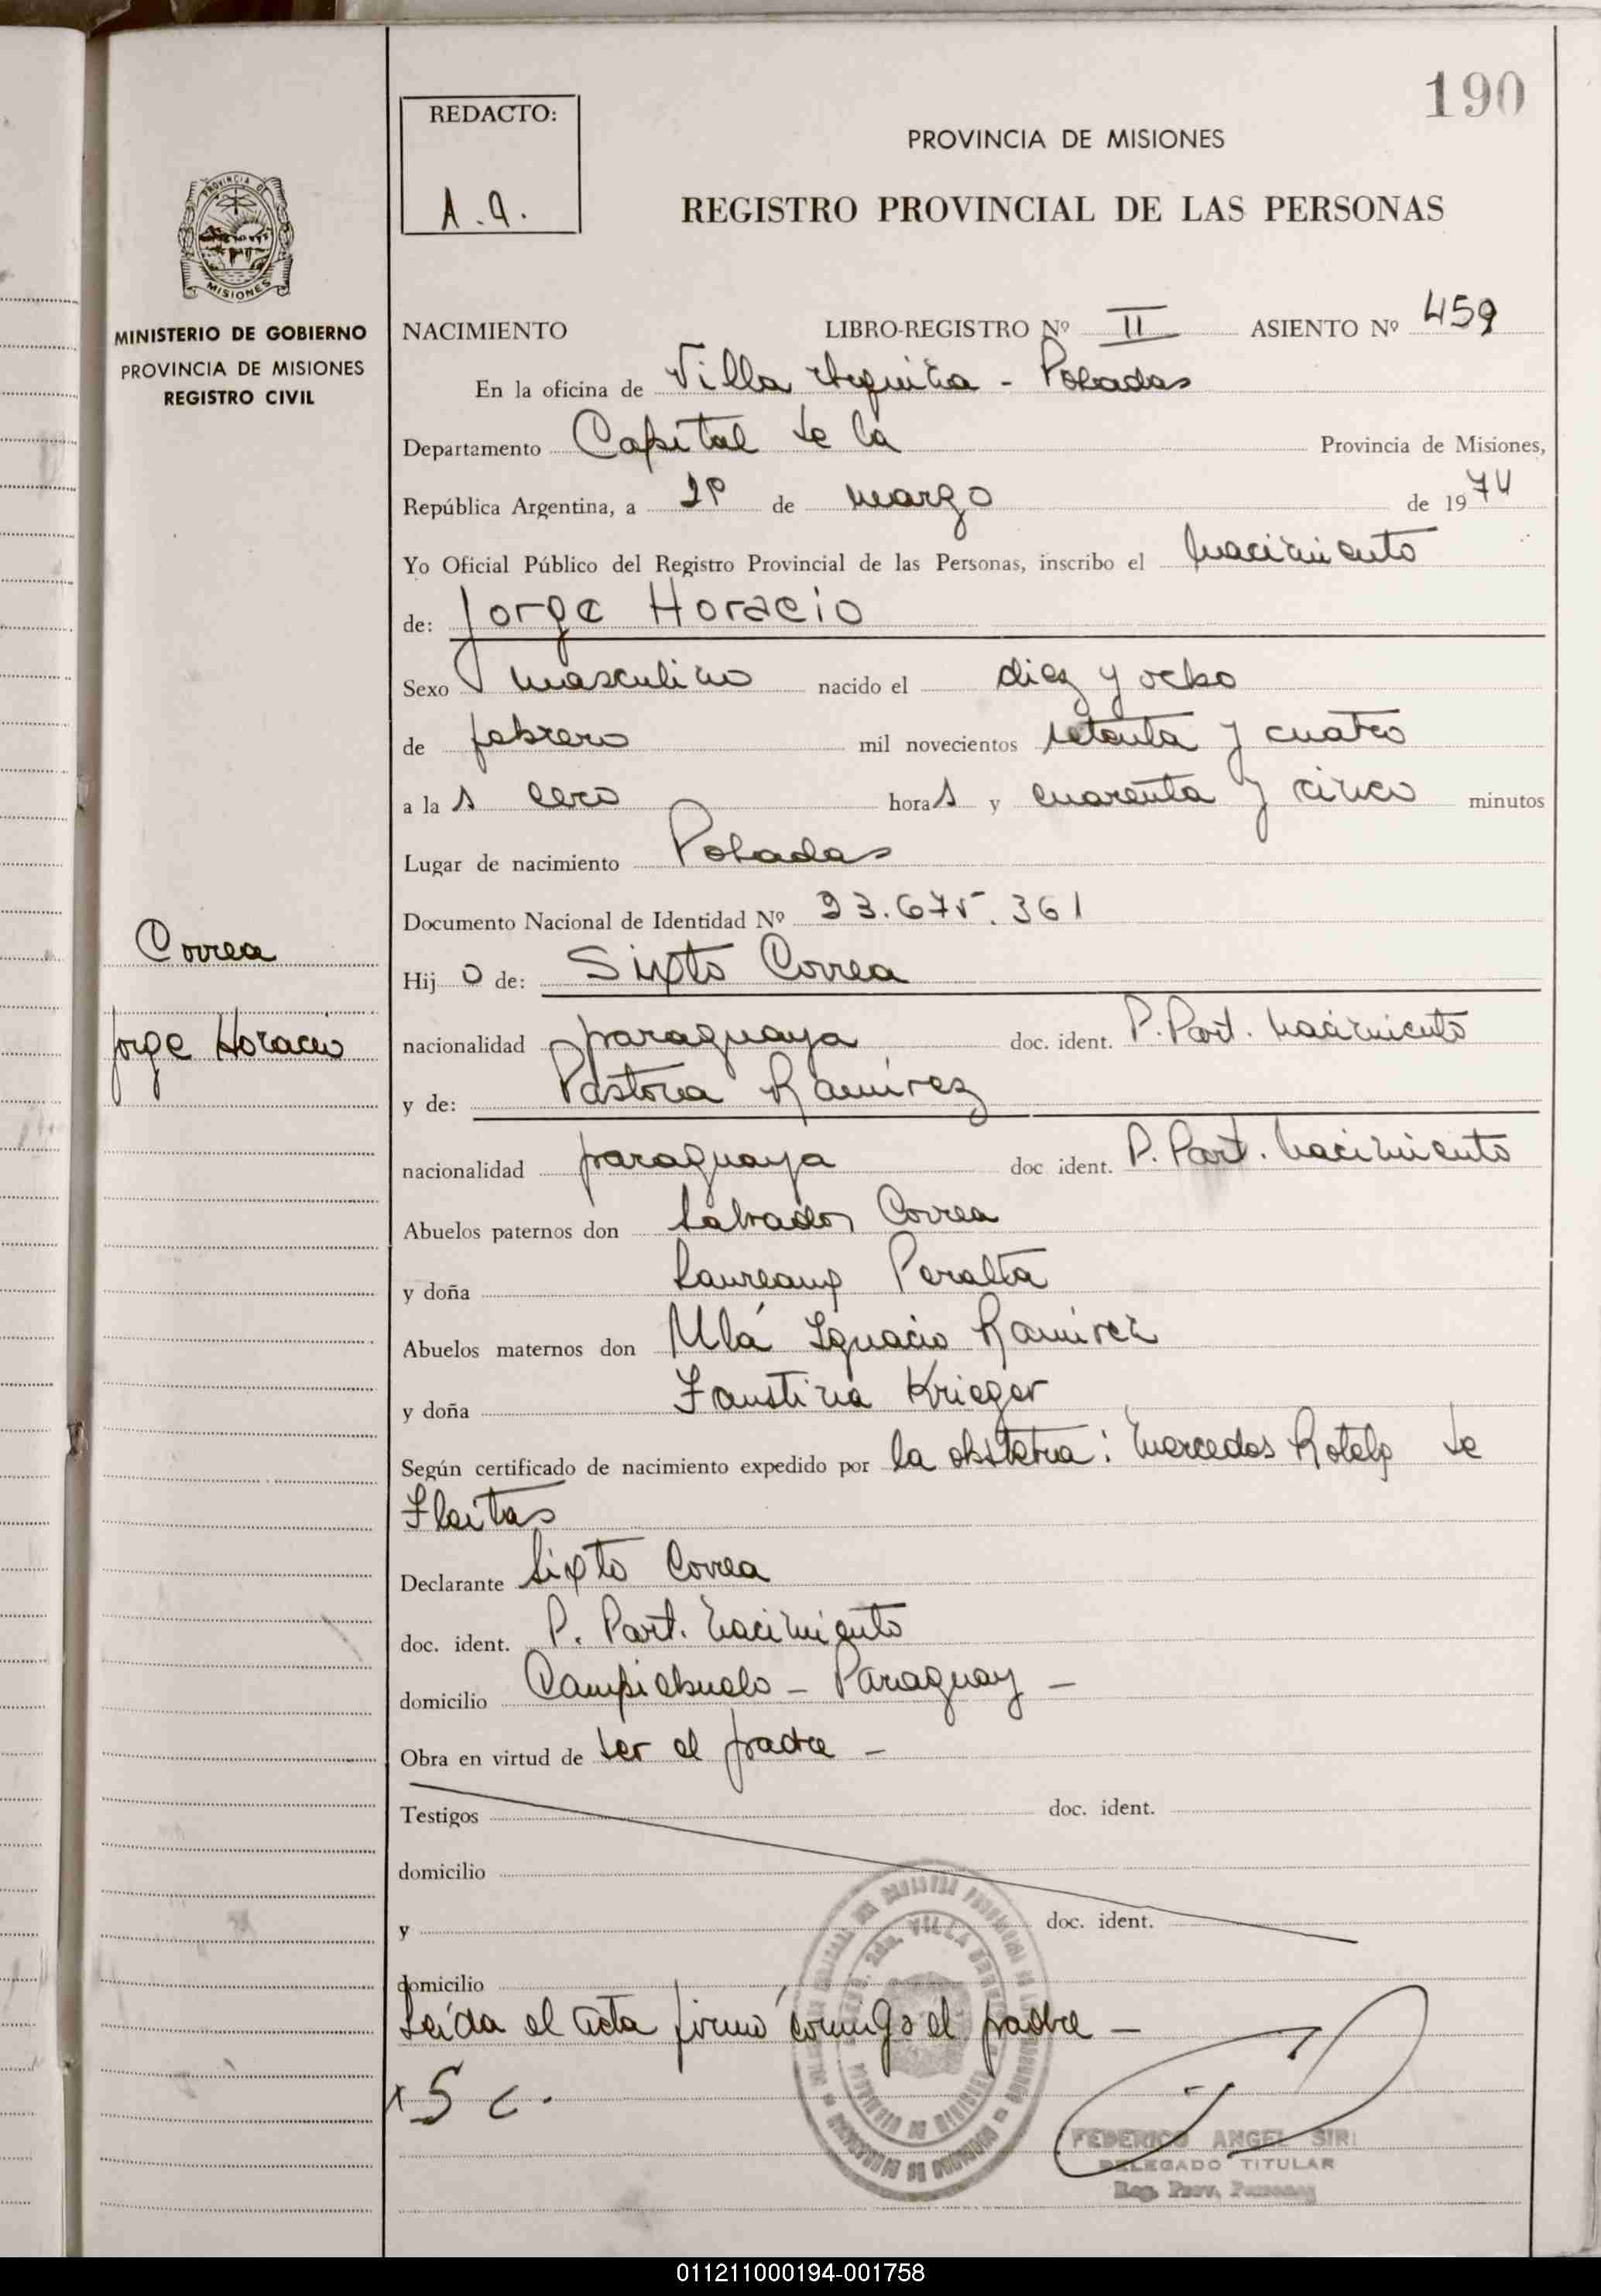 190
REDACTO:
A.A.
PROVINCIA DE MISIONES
REGISTRO PROVINCIAL DE LAS PERSONAS
PROVINCIA DE
MISIONES
MINISTERIO DE GOBIERNO
PROVINCIA DE MISIONES
REGISTRO CIVIL
NACIMIENTO LIBRO-REGISTRO Nº II ASIENTO Nº 459
En la oficina de Villa Urquiza - Posadas
Departamento Capital de la Provincia de Misiones,
República Argentina, a 1º de marzo de 1974
Yo Oficial Público del Registro Provincial de las Personas, inscribo el nacimiento
de: Jorge Horacio
Sexo masculino nacido el diez y ocho
de febrero mil novecientos setenta y cuatro
a las cero horas y cuarenta y cinco minutos
Lugar de nacimiento Posadas
Documento Nacional de Identidad Nº 23.675.361
Correa
Hijo de: Sixto Correa
Jorge Horacio
nacionalidad paraguaya doc. ident. P. Part. nacimiento
y de: Pastora Ramírez
nacionalidad paraguaya doc ident. P. Part. nacimiento
Abuelos paternos don Salvador Correa
y doña Laureana Peralta
Abuelos maternos don Ignacio Ramirez
y doña Faustina Krieger
Según certificado de nacimiento expedido por la obstetra: Mercedes Rotela de
Fleitas
Declarante Sixto Correa
doc. ident. P. Part. nacimiento
domicilio Campichuelo - Paraguay -
Obra en virtud de ser el padre -
Testigos doc. ident.
domicilio
y doc. ident.
domicilio
Leída el acta firmó conmigo el padre -
x S C.
FEDERICO ANGEL SIRI
DELEGADO TITULAR
Reg. Prov. Personas
011211000194-001758